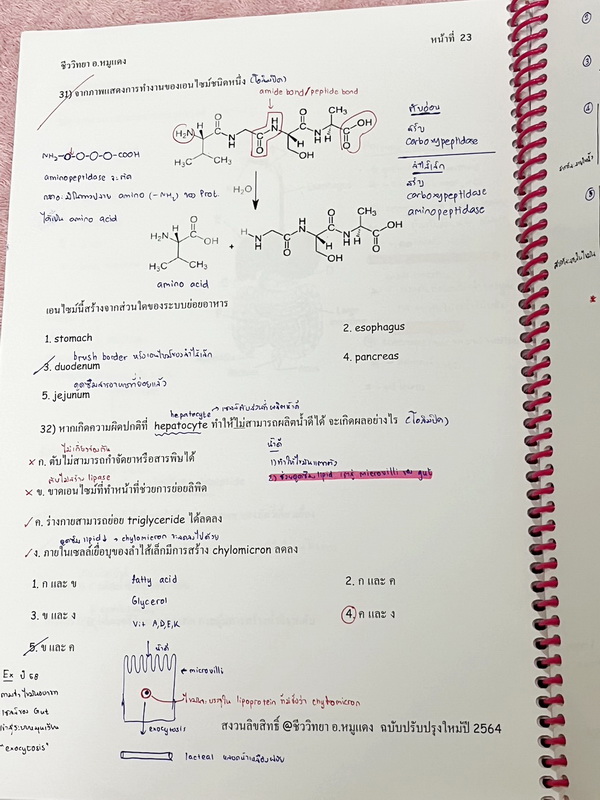 หน้าที่ 23
ชีววิทยา อ.หมูแดง
31) จากภาพแสดงการทำงานของเอนไซม์ชนิดหนึ่ง (โอลิมปิค)
amide bond/peptide bond
ตับอ่อน
สร้าง
carboxypeptidase
ลำไส้เล็ก
สร้าง
carboxypeptidase
aminopeptidase
NH₂-O-O-O-O-COOH
aminopeptidase จะตัด
amino (-NH₂) ของ Prot.
ได้เป็น amino acid
H₂O
amino acid
เอนไซม์นี้สร้างจากส่วนใดของระบบย่อยอาหาร
1. stomach
2. esophagus
brush border
3. duodenum
4. pancreas
ดูดซึมสารอาหารที่ย่อยแล้ว
5. jejunum
hepatocyte
32) หากเกิดความผิดปกติที่ hepatocyte ทำให้ไม่สามารถผลิตน้ำดีได้ จะเกิดผลอย่างไร (โอลิมปิค)
ไม่เกี่ยวข้องกัน
น้ำดี
ก. ตับไม่สามารถกำจัดยาหรือสารพิษได้
1) ทำให้ไขมันแตกตัว
ตับไม่สร้าง lipase
2) ช่วยดูดซึม lipid เข้าสู่ microvilli ของ gut
ข. ขาดเอนไซม์ที่ทำหน้าที่ช่วยการย่อยลิพิด
ค. ร่างกายสามารถย่อย triglyceride ได้ลดลง
ดูดซึม lipid↓ → chylomicron จะลดลงไปด้วย
ง. ภายในเซลล์เยื่อบุของลำไส้เล็กมีการสร้าง chylomicron ลดลง
1. ก และ ข
fatty acid
2. ก และ ค
Glycerol
3. ข และ ง
4. ค และ ง
Vit A,D,E,K
5. ข และ ค
น้ำดี
Ex ปี 58
microvilli
lipoprotein ที่มีชื่อว่า chylomicron
"exocytosis"
exocytosis
สงวนลิขสิทธิ์ @ชีววิทยา อ.หมูแดง ฉบับปรับปรุงใหม่ปี 2564
lacteal หลอดน้ำเหลืองฝอย